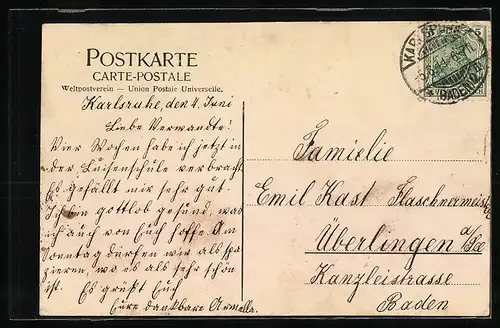 POSTKARTE
CARTE-POSTALE
Weltpostverein — Union Postale Universelle.
Karlsruhe, den 4. Juni
Liebe Verwandte!
Vier Wochen habe ich jetzt in
der Luisenschule verbracht
Es gefällt mir sehr gut.
Ich bin gottlob gesund, was
ich auch von Euch hoffe. Am
Sonntag durften wir als spa-
zieren, wo es als sehr schön
ist. Es grüßt Euch
Eure dankbare Armella.
Familie
Emil Kast Flaschnermeister
Überlingen a/See
Kanzleistrasse
Baden
KARLSRUHE
(BADEN) 2
5